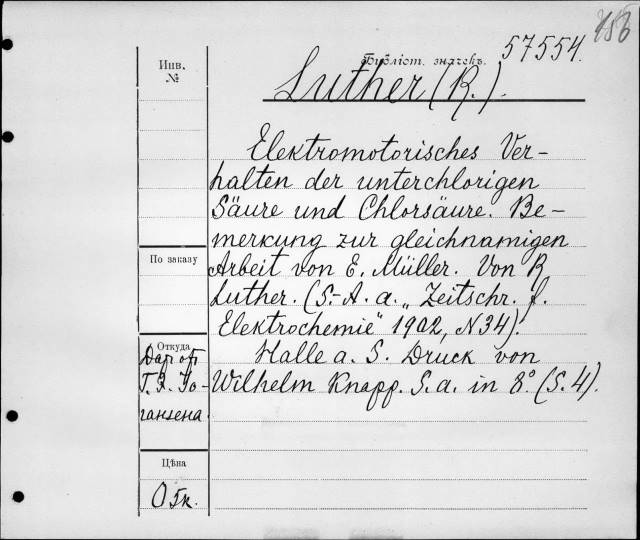 156
57554.
Библіот. значекъ.
Luther (R.).
Инв.
№
Elektromotorisches Ver-
halten der unterchlorigen
Säure und Chlorsäure. Be-
merkung zur gleichnamigen
Arbeit von E. Müller. Von R
Luther. (S.-A. a. „Zeitschr. f.
Elektrochemie" 1902, N 34).
Halle a. S. Druck von
Wilhelm Knapp. S. a. in 8°. (S. 4).
По заказу
Откуда
Дар от
Г. Я. Йо-
гансена.
Цѣна